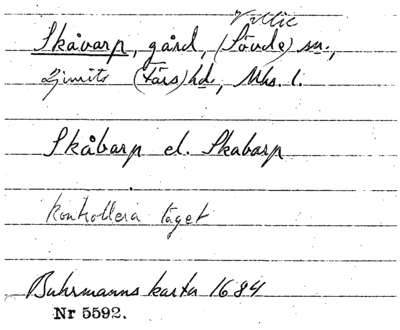 Vollie
Skåvarp, gård, (Sövde) sn.,
Ljunits (Färs) hd, Mhs. l.
Skåbarp el. Skabarp
kontrollera läget
Buhrmanns karta 1684
Nr 5592.